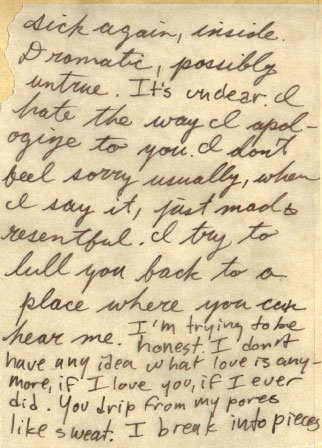 sick again, inside.
Dramatic, possibly
untrue. It's unclear. I
hate the way I apol-
ogize to you. I don't
feel sorry usually, when
I say it, just mad &
resentful. I try to
lull you back to a
place where you can
hear me. I'm trying to be
honest I don't
have any idea what love is any-
more, if I love you, if I ever
did. You drip from my pores
like sweat. I break into pieces